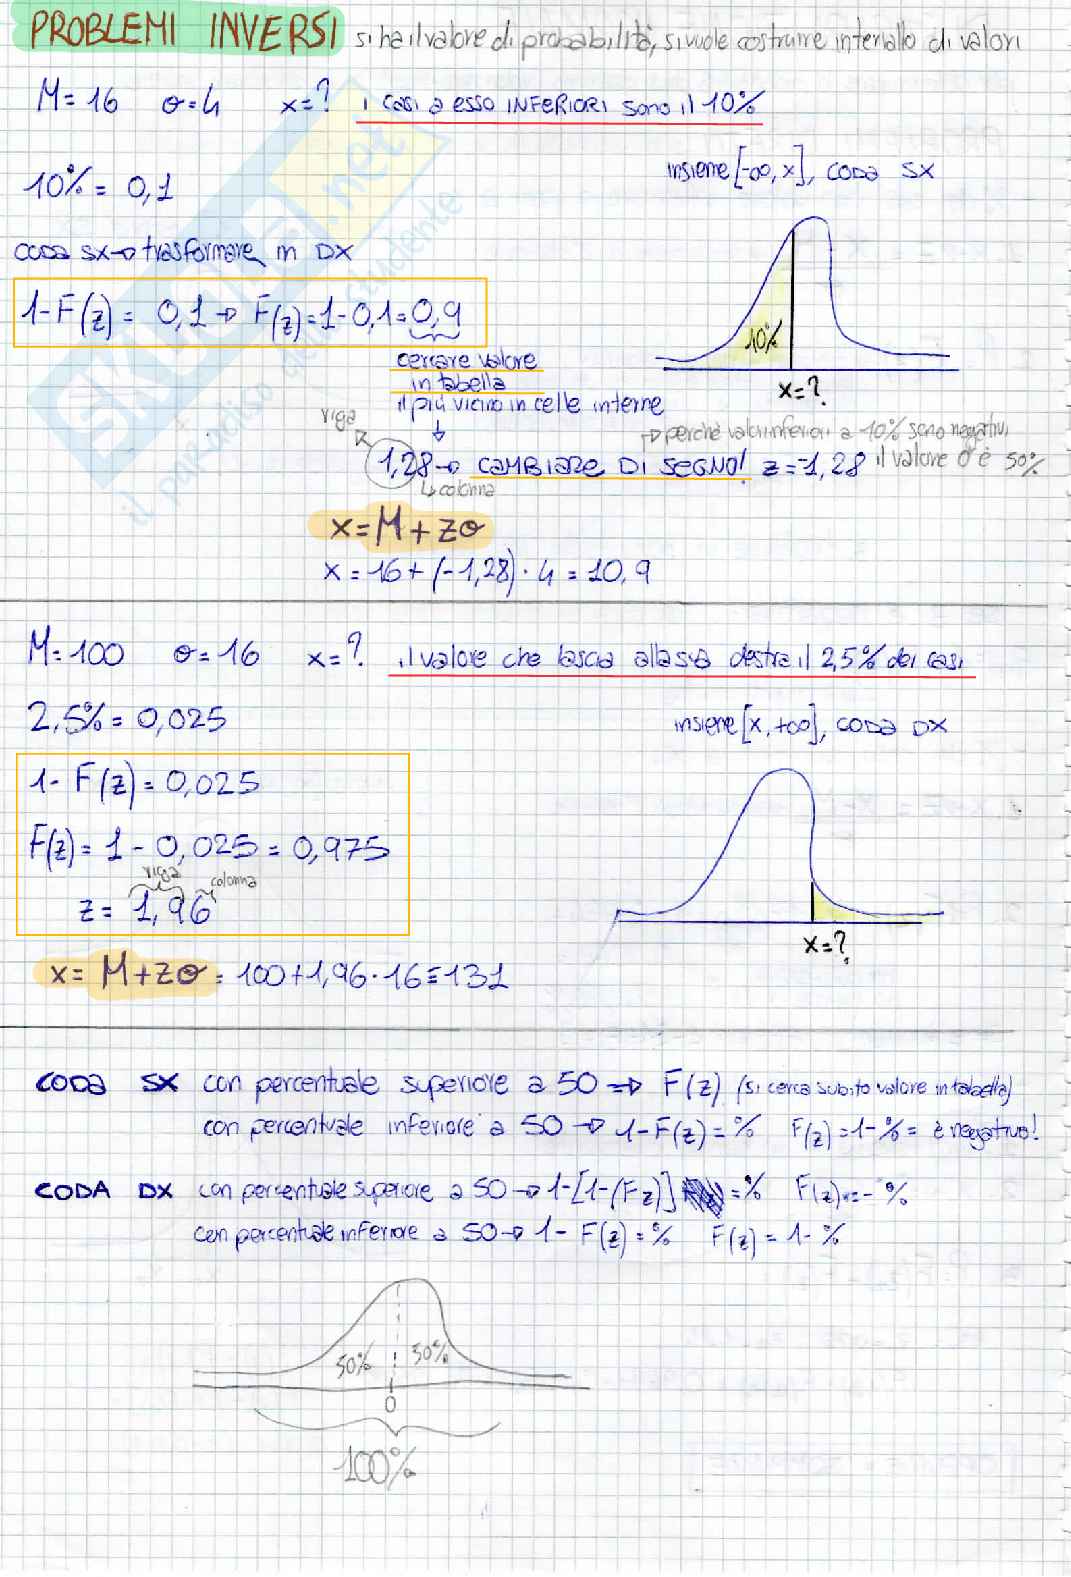 PROBLEMI INVERSI si ha il valore di probabilità, si vuole costruire intervallo di valori
M=16 σ=4 x=? i casi a esso INFERIORI sono il 10%
insieme [-∞, x], coda SX
10% = 0,1
coda SX → trasformare in DX
1-F(z) = 0,1 → F(z)=1-0,1=0,9
10%
x=?
cercare valore
in tabella
il più vicino in celle interne
riga
→ perché valori inferiori a 10% sono negativi
1,28 → CAMBIARE DI SEGNO! z=-1,28 il valore 0 è 50%
↳ colonna
x=M+zσ
x = 16+(-1,28)·4 = 10,9
M=100 σ=16 x=? il valore che lascia alla sua destra il 2,5% dei casi
2,5% = 0,025
insieme [x, +∞], coda DX
1- F(z) = 0,025
F(z) = 1 - 0,025 = 0,975
riga colonna
z = 1,96
x=?
x= M+zσ = 100+1,96·16 = 131
CODA SX con percentuale superiore a 50 → F(z) (si cerca subito valore in tabella)
con percentuale inferiore a 50 → 1-F(z)=% F(z)=1-%= è negativo!
CODA DX con percentuale superiore a 50 → 1-[1-(Fz)] =% F(z)=-%
con percentuale inferiore a 50 → 1- F(z)=% F(z) = 1-%
50% 50%
0
100%
SKUOLA.net
il paradiso dello studente